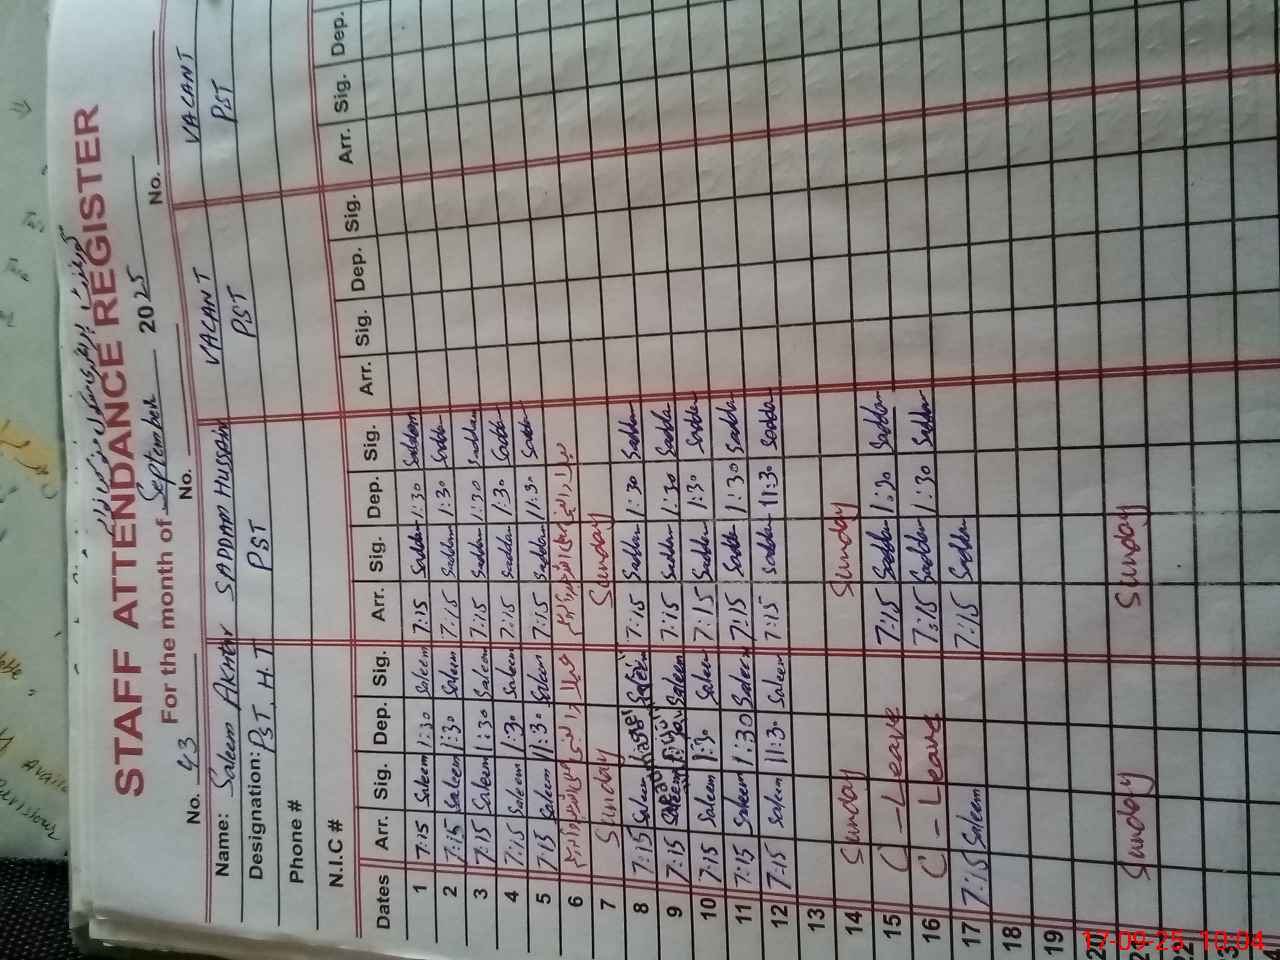 STAFF ATTENDANCE REGISTER
For the month of September 2025
No. 43 No. No.
Name: Saleem Akhter SADDAM HUSSAIN VACANT VACANT
Designation: PST, H.T PST PST PST
Phone #
N.I.C #
Dates Arr. Sig. Dep. Sig. Arr. Sig. Dep. Sig. Arr. Sig. Dep. Sig. Arr. Sig. Dep.
1 7:15 Saleem 1:30 Saleem 7:15 Saddam 1:30 Saddam
2 7:15 Saleem 1:30 Saleem 7:15 Saddam 1:30 Saddam
3 7:15 Saleem 1:30 Saleem 7:15 Saddam 1:30 Saddam
4 7:15 Saleem 1:30 Saleem 7:15 Saddam 1:30 Saddam
5 7:15 Saleem 11:30 Saleem 7:15 Saddam 11:30 Saddam
6
7 Sunday Sunday
8 7:15 Saleem Saleem 7:15 Saddam 1:30 Saddam
9 7:15 Saleem Saleem 7:15 Saddam 1:30 Saddam
10 7:15 Saleem 1:30 Saleem 7:15 Saddam 1:30 Saddam
11 7:15 Saleem 1:30 Saleem 7:15 Saddam 1:30 Saddam
12 7:15 Saleem 11:30 Saleem 7:15 Saddam 11:30 Saddam
13
14 Sunday Sunday
15 C-Leave 7:15 Saddam 1:30 Saddam
16 C-Leave 7:15 Saddam 1:30 Saddam
17 7:15 Saleem 7:15 Saddam
18
19
20
Sunday Sunday
17-09-25 10:04